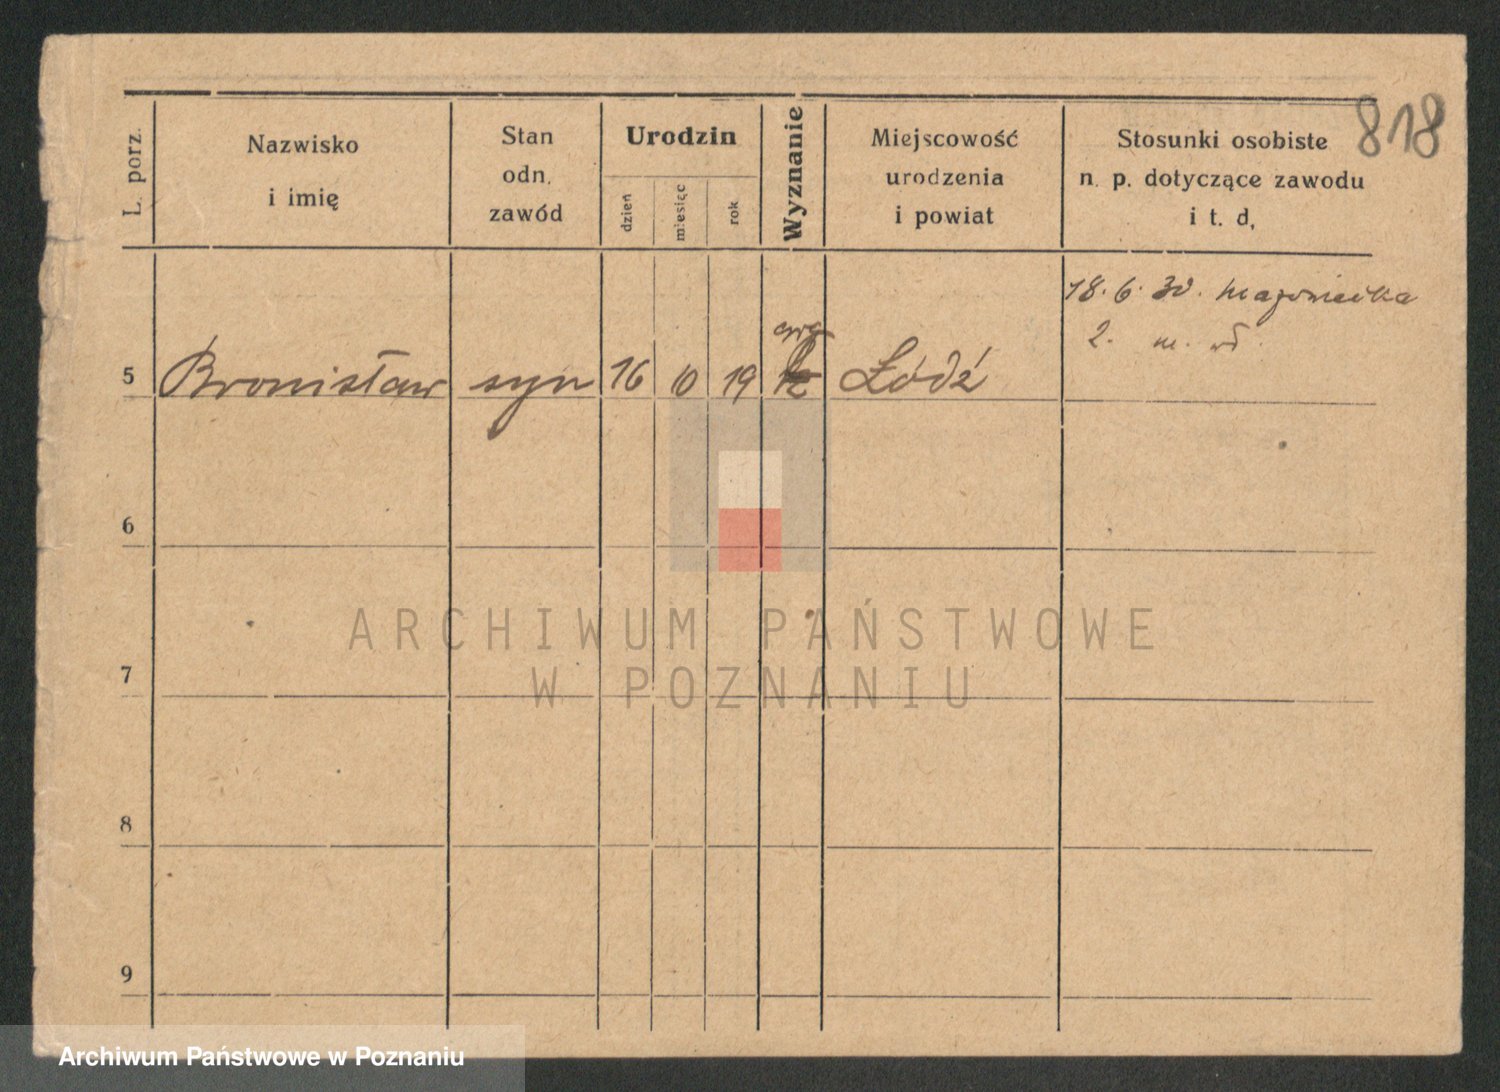 818
L. porz.
Nazwisko
i imię
Stan
odn.
zawód
Urodzin
dzień
miesiąc
rok
Wyznanie
Miejscowość
urodzenia
i powiat
Stosunki osobiste
n. p. dotyczące zawodu
i t. d,
18. 6. 30.
2. m.
5 Bronisław syn 16 10 19 Łódź
6
7
8
9
ARCHIWUM PAŃSTWOWE
W POZNANIU
Archiwum Państwowe w Poznaniu